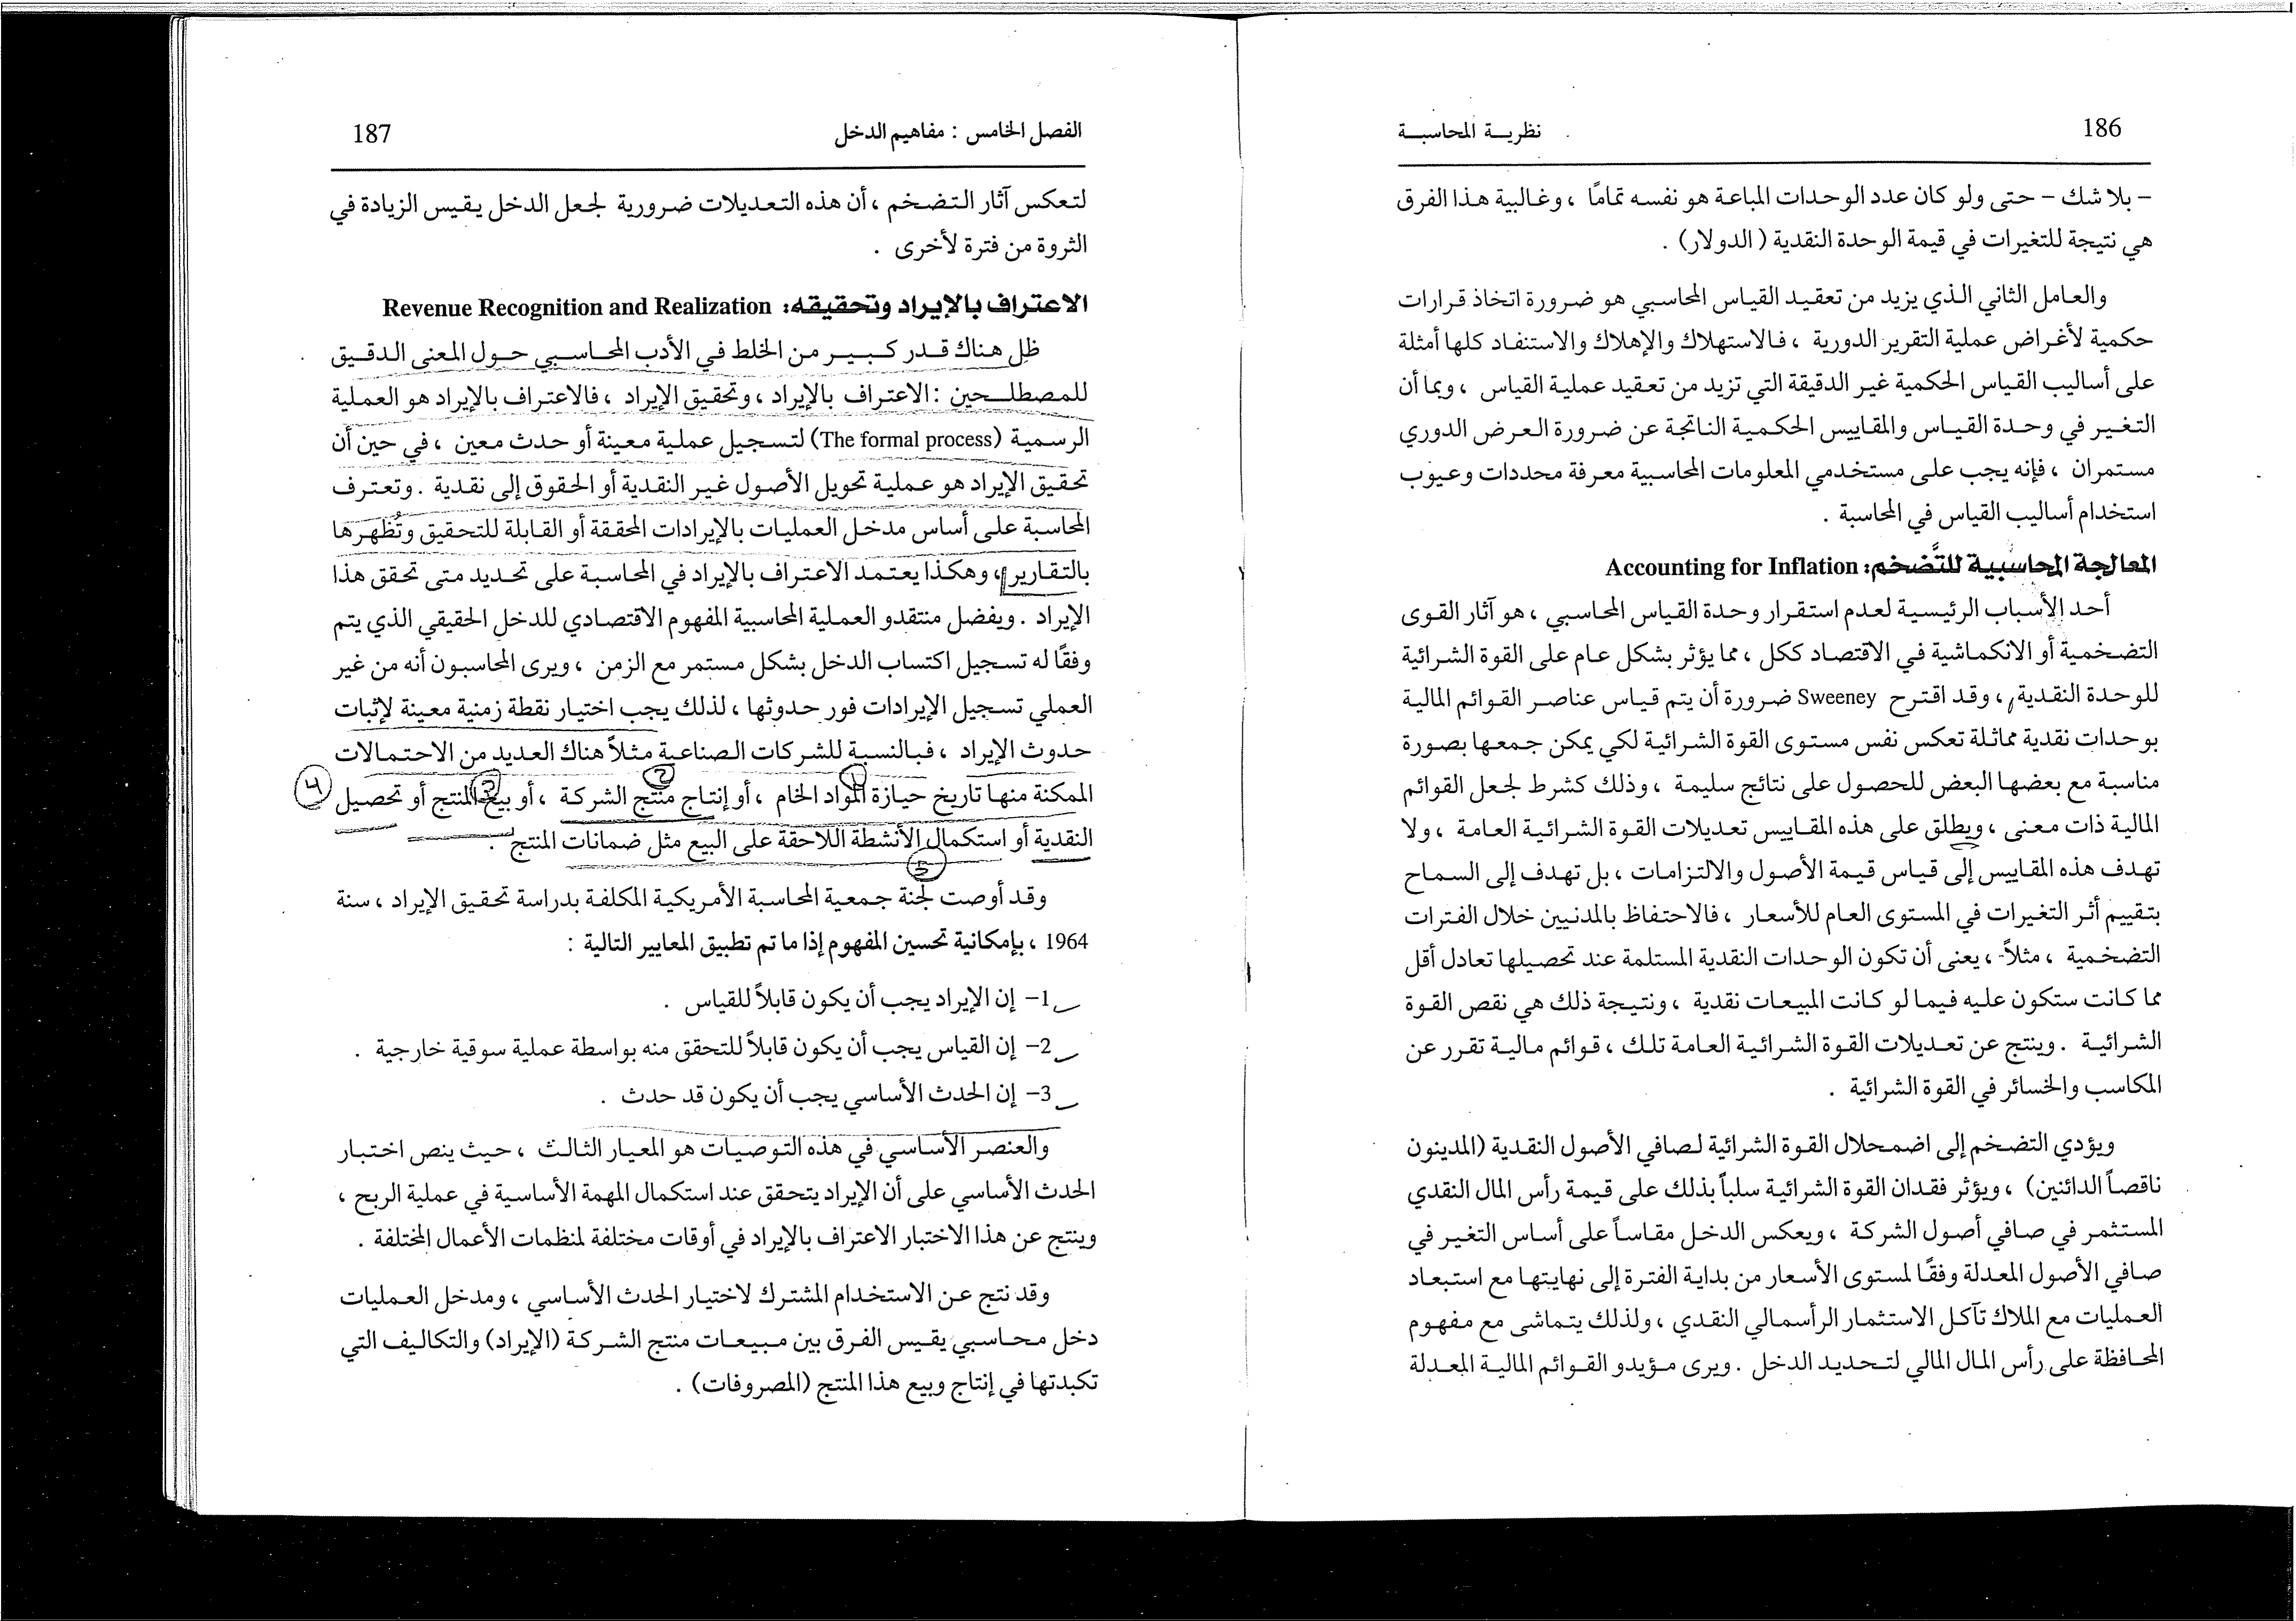 186
نظرية المحاسبة
– بلا شك – حتى ولو كان عدد الوحدات المباعة هو نفسه تمامًا ، وغالبية هذا الفرق
هي نتيجة للتغيرات في قيمة الوحدة النقدية ( الدولار) .
والعامل الثاني الذي يزيد من تعقيد القياس المحاسبي هو ضرورة اتخاذ قرارات
حكمية لأغراض عملية التقرير الدورية ، فالاستهلاك والإهلاك والاستنفاد كلها أمثلة
على أساليب القياس الحكمية غير الدقيقة التي تزيد من تعقيد عملية القياس ، وبما أن
التغير في وحدة القياس والمقاييس الحكمية الناتجة عن ضرورة العرض الدوري
مستمران ، فإنه يجب على مستخدمي المعلومات المحاسبية معرفة محددات وعيوب
استخدام أساليب القياس في المحاسبة .
المعالجة المحاسبية للتَّضخم: Accounting for Inflation
أحد الأسباب الرئيسية لعدم استقرار وحدة القياس المحاسبي ، هو آثار القوى
التضخمية أو الانكماشية في الاقتصاد ككل ، مما يؤثر بشكل عام على القوة الشرائية
للوحدة النقدية ، وقد اقترح Sweeney ضرورة أن يتم قياس عناصر القوائم المالية
بوحدات نقدية مماثلة تعكس نفس مستوى القوة الشرائية لكي يمكن جمعها بصورة
مناسبة مع بعضها البعض للحصول على نتائج سليمة ، وذلك كشرط لجعل القوائم
المالية ذات معنى ، ويطلق على هذه المقاييس تعديلات القوة الشرائية العامة ، ولا
تهدف هذه المقاييس إلى قياس قيمة الأصول والالتزامات ، بل تهدف إلى السماح
بتقييم أثر التغيرات في المستوى العام للأسعار ، فالاحتفاظ بالمدنيين خلال الفترات
التضخمية ، مثلاً ، يعنى أن تكون الوحدات النقدية المستلمة عند تحصيلها تعادل أقل
مما كانت ستكون عليه فيما لو كانت المبيعات نقدية ، ونتيجة ذلك هي نقص القوة
الشرائية . وينتج عن تعديلات القوة الشرائية العامة تلك ، قوائم مالية تقرر عن
المكاسب والخسائر في القوة الشرائية .
ويؤدي التضخم إلى اضمحلال القوة الشرائية لصافي الأصول النقدية (المدينون
ناقصاً الدائنين) ، ويؤثر فقدان القوة الشرائية سلباً بذلك على قيمة رأس المال النقدي
المستثمر في صافي أصول الشركة ، ويعكس الدخل مقاساً على أساس التغير في
صافي الأصول المعدلة وفقًا لمستوى الأسعار من بداية الفترة إلى نهايتها مع استبعاد
العمليات مع الملاك تآكل الاستثمار الرأسمالي النقدي ، ولذلك يتماشى مع مفهوم
المحافظة على رأس المال المالي لتحديد الدخل . ويرى مؤيدو القوائم المالية المعدلة
الفصل الخامس : مفاهيم الدخل
187
لتعكس آثار التضخم ، أن هذه التعديلات ضرورية لجعل الدخل يقيس الزيادة في
الثروة من فترة لأخرى .
الاعتراف بالإيراد وتحقيقه: Revenue Recognition and Realization
ظل هناك قدر كبير من الخلط في الأدب المحاسبي حول المعنى الدقيق
للمصطلحين : الاعتراف بالإيراد ، وتحقيق الإيراد ، فالاعتراف بالإيراد هو العملية
الرسمية (The formal process) لتسجيل عملية معينة أو حدث معين ، في حين أن
تحقيق الإيراد هو عملية تحويل الأصول غير النقدية أو الحقوق إلى نقدية . وتعترف
المحاسبة على أساس مدخل العمليات بالإيرادات المحققة أو القابلة للتحقيق وتُظهرها
بالتقارير ، وهكذا يعتمد الاعتراف بالإيراد في المحاسبة على تحديد متى تحقق هذا
الإيراد . ويفضل منتقدو العملية المحاسبية المفهوم الاقتصادي للدخل الحقيقي الذي يتم
وفقًا له تسجيل اكتساب الدخل بشكل مستمر مع الزمن ، ويرى المحاسبون أنه من غير
العملي تسجيل الإيرادات فور حدوثها ، لذلك يجب اختيار نقطة زمنية معينة لإثبات
حدوث الإيراد ، فبالنسبة للشركات الصناعية مثلاً هناك العديد من الاحتمالات
1 2 3 4
الممكنة منها تاريخ حيازة المواد الخام ، أو إنتاج منتج الشركة ، أو بيع المنتج أو تحصيل
النقدية أو استكمال الأنشطة اللاحقة على البيع مثل ضمانات المنتج .
5
وقد أوصت لجنة جمعية المحاسبة الأمريكية المكلفة بدراسة تحقيق الإيراد ، سنة
1964 ، بإمكانية تحسين المفهوم إذا ما تم تطبيق المعايير التالية :
1– إن الإيراد يجب أن يكون قابلاً للقياس .
2– إن القياس يجب أن يكون قابلاً للتحقق منه بواسطة عملية سوقية خارجية .
3– إن الحدث الأساسي يجب أن يكون قد حدث .
والعنصر الأساسي في هذه التوصيات هو المعيار الثالث ، حيث ينص اختبار
الحدث الأساسي على أن الإيراد يتحقق عند استكمال المهمة الأساسية في عملية الربح ،
وينتج عن هذا الاختبار الاعتراف بالإيراد في أوقات مختلفة لمنظمات الأعمال المختلفة .
وقد نتج عن الاستخدام المشترك لاختيار الحدث الأساسي ، ومدخل العمليات
دخل محاسبي يقيس الفرق بين مبيعات منتج الشركة (الإيراد) والتكاليف التي
تكبدتها في إنتاج وبيع هذا المنتج (المصروفات) .